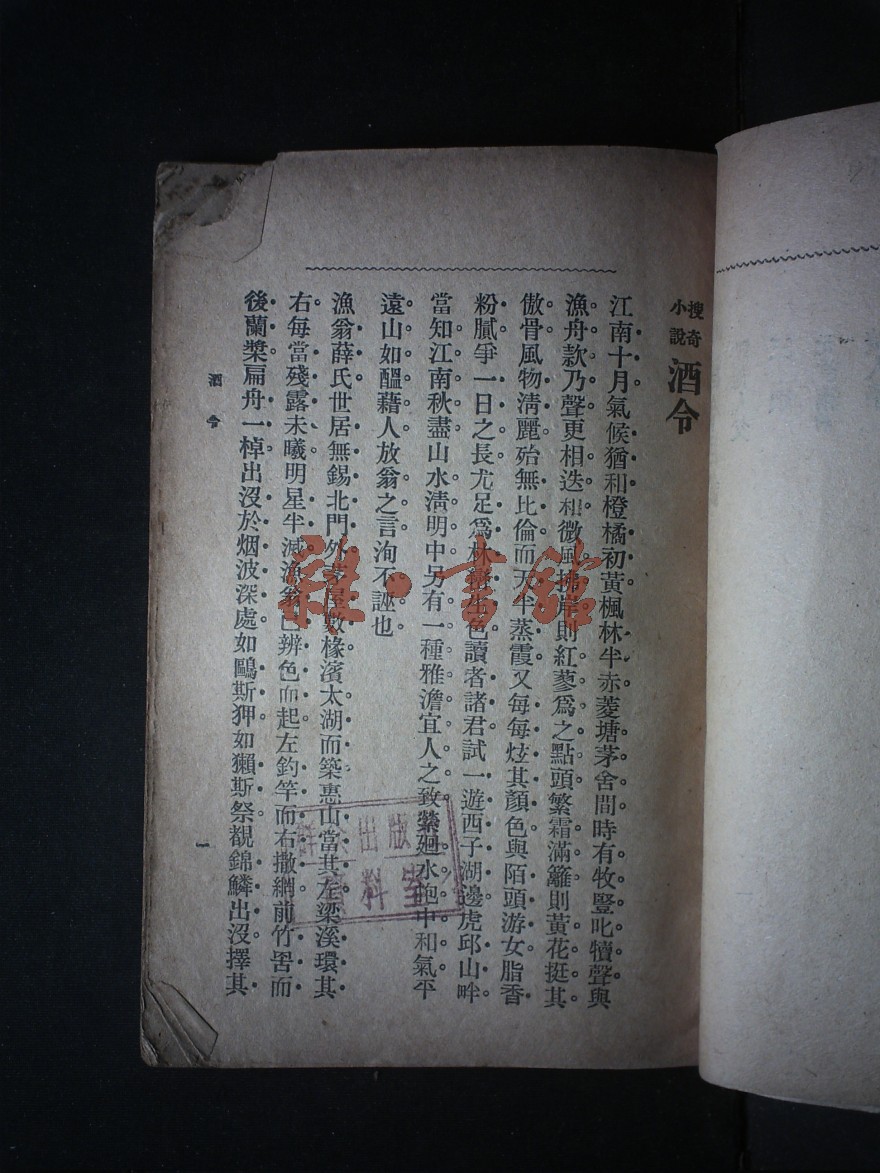 搜奇小說
酒令
江南十月氣候猶和橙橘初黃楓林半赤菱塘茅舍間時有牧豎叱犢聲與
漁舟款乃聲更相迭和微風拂岸則紅蓼爲之點頭繁霜滿籬則黃花挺其
傲骨風物淸麗殆無比倫而天半蒸霞又每每炫其顏色與陌頭游女脂香
粉膩爭一日之長尤足爲林巒生色讀者諸君試一遊西子湖邊虎邱山畔
當知江南秋盡山水淸明中另有一種雅澹宜人之致縈廻水抱中和氣平
遠山如醞藉人放翁之言洵不誣也
漁翁薛氏世居無錫北門外茅屋數椽濱太湖而築惠山當其左梁溪環其
右每當殘露未曦明星半滅漁翁已辨色而起左釣竿而右撒網前竹罟而
後蘭槳扁舟一棹出沒於烟波深處如鷗斯狎如獺斯祭覩錦鱗出沒擇其
酒令
一
雜·書館
出版
料室